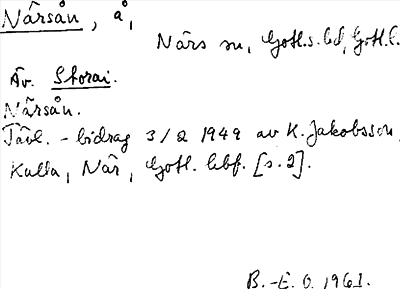 Närsån, å,
Närs sn, Gotl.s. hd, Gotl. l.
Äv. Storai.
Närsån.
Tävl. - bidrag 3/2 1949 av K. Jakobsson,
Kulla, När, Gotl. bbf. [s. 2].
B.-E. O. 1961.